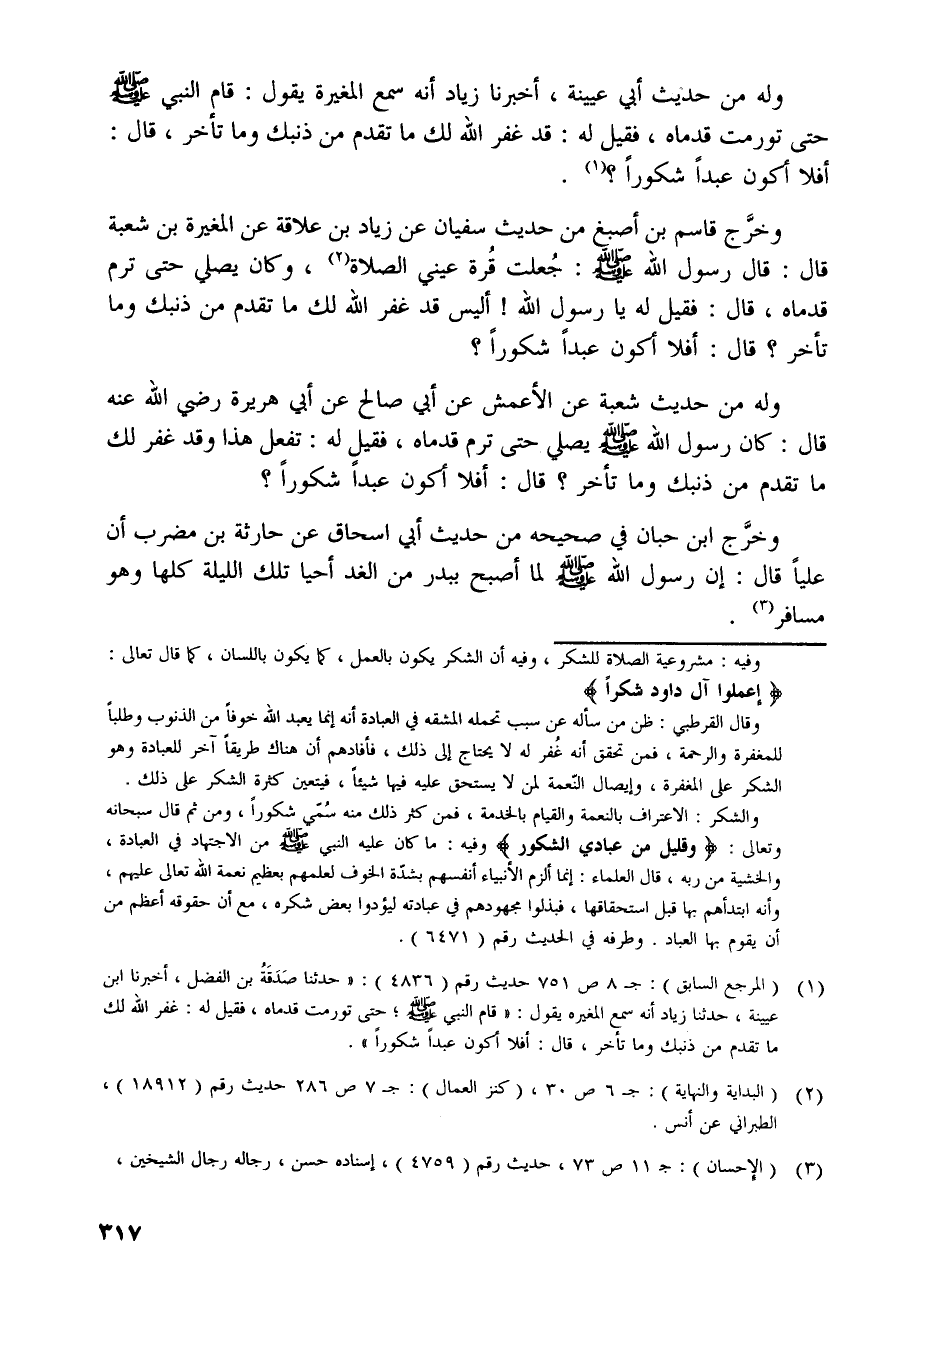 وله من حديث أبي عيينة ، أخبرنا زياد أنه سمع المغيرة يقول : قام النبي ﷺ
حتى تورمت قدماه ، فقيل له : قد غفر الله لك ما تقدم من ذنبك وما تأخر ، قال :
أفلا أكون عبداً شكوراً ؟(١) .
وخرَّج قاسم بن أصبغ من حديث سفيان عن زياد بن علاقة عن المغيرة بن شعبة
قال : قال رسول الله ﷺ : جُعلت قُرة عيني الصلاة(٢) ، وكان يصلي حتى ترم
قدماه ، قال : فقيل له يا رسول الله ! أليس قد غفر الله لك ما تقدم من ذنبك وما
تأخر ؟ قال : أفلا أكون عبداً شكوراً ؟
وله من حديث شعبة عن الأعمش عن أبي صالح عن أبي هريرة رضي الله عنه
قال : كان رسول الله ﷺ يصلي حتى ترم قدماه ، فقيل له : تفعل هذا وقد غفر لك
ما تقدم من ذنبك وما تأخر ؟ قال : أفلا أكون عبداً شكوراً ؟
وخرَّج ابن حبان في صحيحه من حديث أبي اسحاق عن حارثة بن مضرب أن
علياً قال : إن رسول الله ﷺ لما أصبح ببدر من الغد أحيا تلك الليلة كلها وهو
مسافر(٣) .
وفيه : مشروعية الصلاة للشكر ، وفيه أن الشكر يكون بالعمل ، كما يكون باللسان ، كما قال تعالى :
﴿ إعملوا آل داود شكراً ﴾
وقال القرطبي : ظن من سأله عن سبب تحمله المشقه في العبادة أنه إنما يعبد الله خوفاً من الذنوب وطلباً
للمغفرة والرحمة ، فمن تحقق أنه غُفر له لا يحتاج إلى ذلك ، فأفادهم أن هناك طريقاً آخر للعبادة وهو
الشكر على المغفرة ، وإيصال النّعمة لمن لا يستحق عليه فيها شيئاً ، فيتعين كثرة الشكر على ذلك .
والشكر : الاعتراف بالنعمة والقيام بالخدمة ، فمن كثر ذلك منه سُمّي شكوراً ، ومن ثم قال سبحانه
وتعالى : ﴿ وقليل من عبادي الشكور ﴾ وفيه : ما كان عليه النبي ﷺ من الاجتهاد في العبادة ،
والخشية من ربه ، قال العلماء : إنما ألزم الأنبياء أنفسهم بشدّة الخوف لعلمهم بعظيم نعمة الله تعالى عليهم ،
وأنه ابتدأهم بها قبل استحقاقها ، فبذلوا مجهودهم في عبادته ليؤدوا بعض شكره ، مع أن حقوقه أعظم من
أن يقوم بها العباد . وطرفه في الحديث رقم ( ٦٤٧١ ) .
(١) ( المرجع السابق ) : جـ ٨ ص ٧٥١ حديث رقم ( ٤٨٣٦ ) : « حدثنا صَدَقَةُ بن الفضل ، أخبرنا ابن
عيينة ، حدثنا زياد أنه سمع المغيره يقول : « قام النبي ﷺ ؛ حتى تورمت قدماه ، فقيل له : غفر الله لك
ما تقدم من ذنبك وما تأخر ، قال : أفلا أكون عبداً شكوراً » .
(٢) ( البداية والنهاية ) : جـ ٦ ص ٣٠ ، ( كنز العمال ) : جـ ٧ ص ٢٨٦ حديث رقم ( ١٨٩١٢ ) ،
الطبراني عن أنس .
(٣) ( الإحسان ) : جـ ١١ ص ٧٣ ، حديث رقم ( ٤٧٥٩ ) ، إسناده حسن ، رجاله رجال الشيخين ،
٣١٧